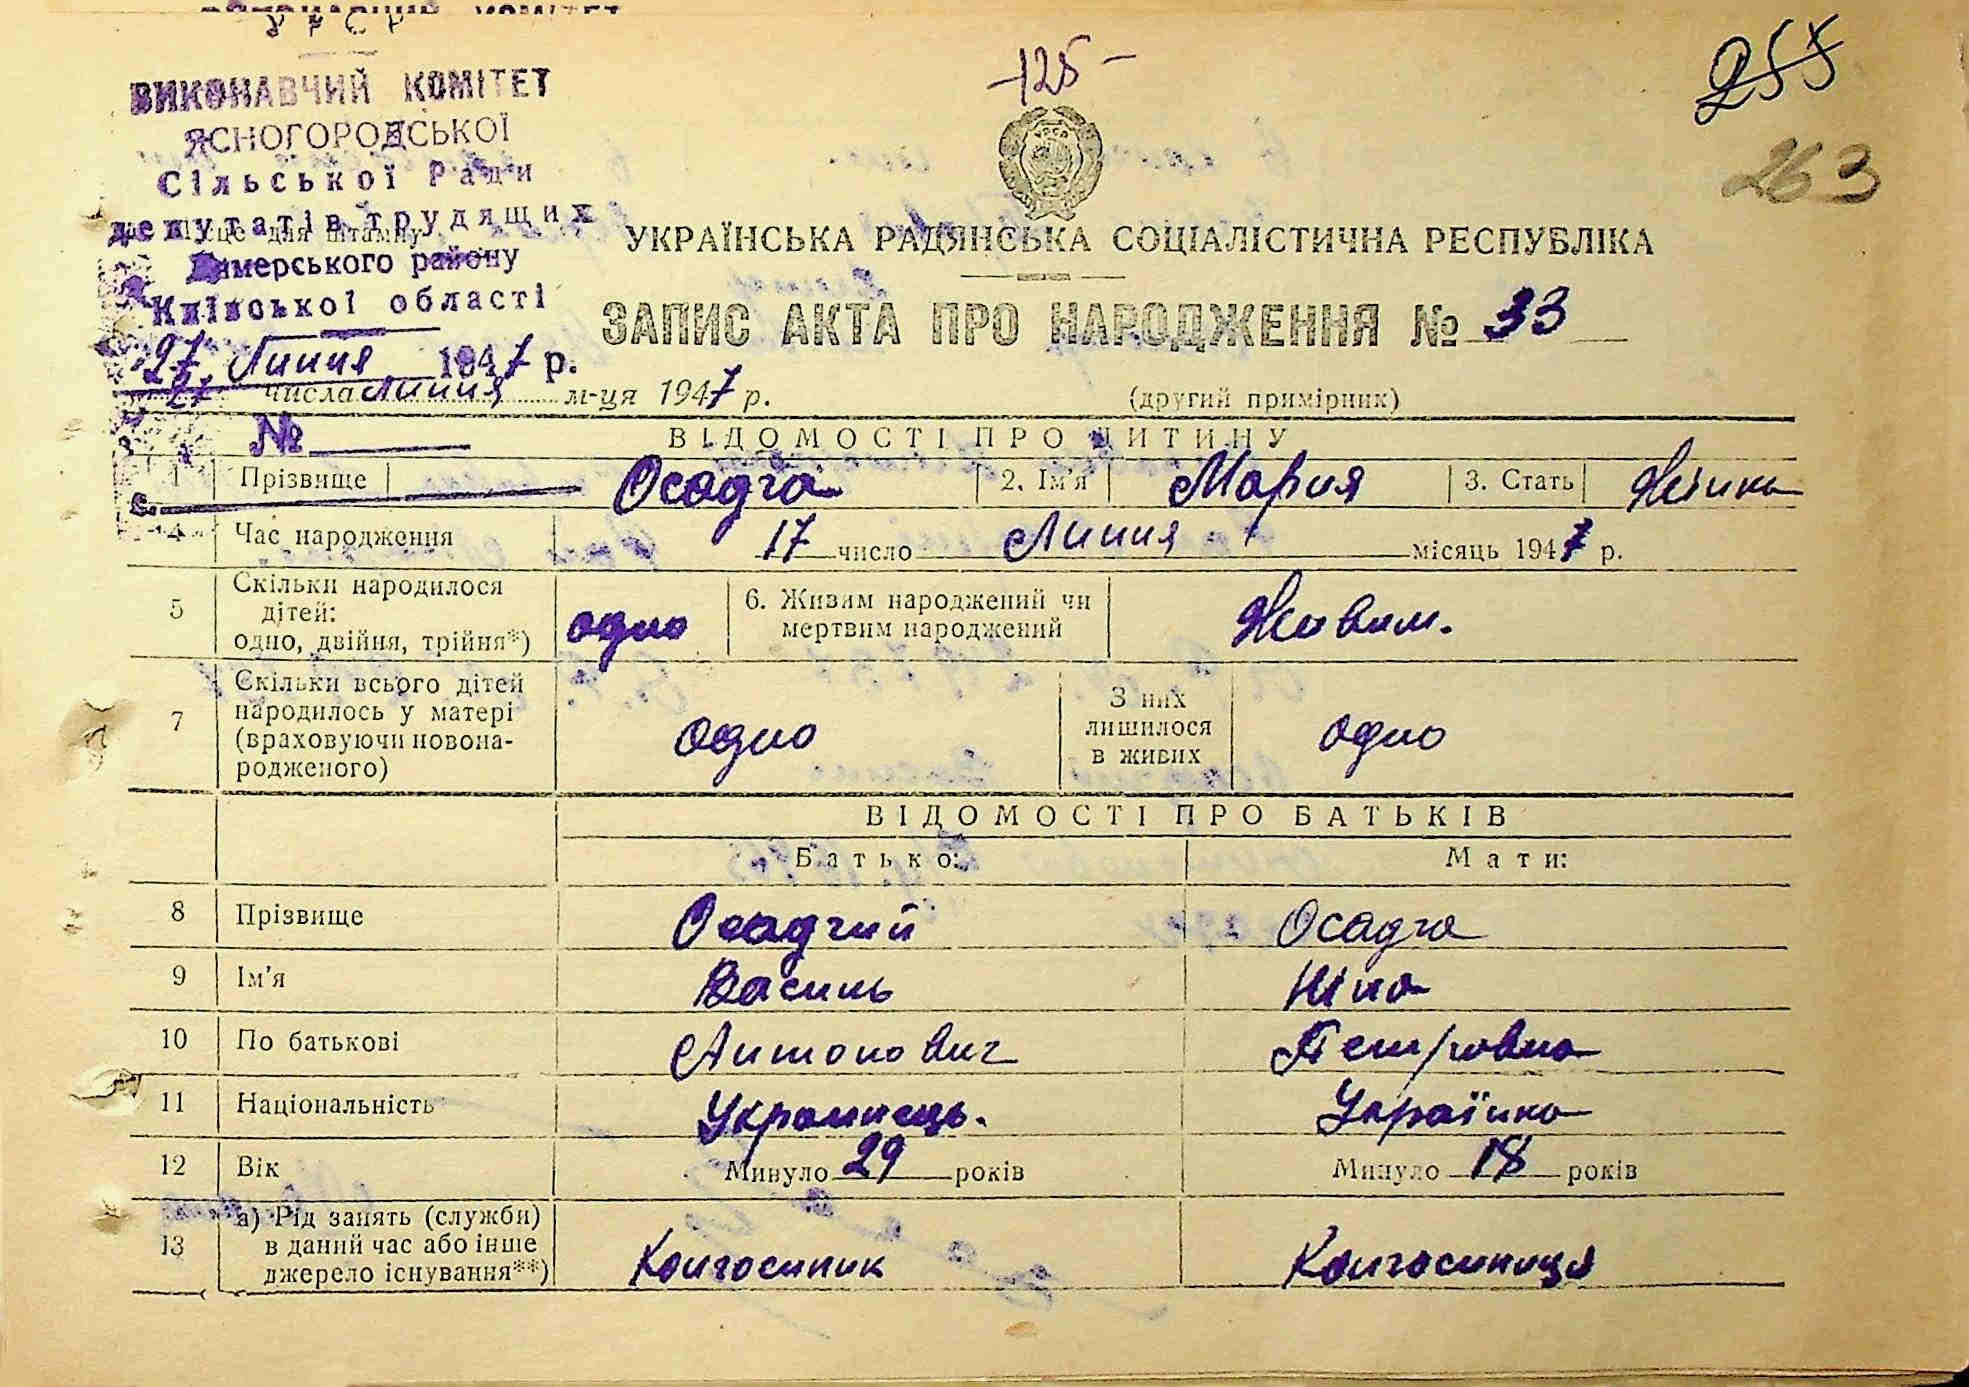 УРСР
ВИКОНАВЧИЙ КОМІТЕТ
ЯСНОГОРОДСЬКОЇ
Сільської Ради
депутатів трудящих
Димерського району
Київської області
27 Липня 1947 р.
№
-125-
255
263
УКРАЇНСЬКА РАДЯНСЬКА СОЦІАЛІСТИЧНА РЕСПУБЛІКА
ЗАПИС АКТА ПРО НАРОДЖЕННЯ № 33
27 числа липня м-ця 1947 р. (другий примірник)
ВІДОМОСТІ ПРО ДИТИНУ
1 Прізвище Осадча 2. Ім'я Мария 3. Стать Жінка
4 Час народження 17 число Липня місяць 1947 р.
5 Скільки народилося дітей: одно, двійня, трійня*) одно 6. Живим народжений чи мертвим народжений Живим.
7 Скільки всього дітей народилось у матері (враховуючи новонародженого) одно З них лишилося в живих одно
ВІДОМОСТІ ПРО БАТЬКІВ
Батько: Мати:
8 Прізвище Осадчий Осадча
9 Ім'я Василь Ніна
10 По батькові Антонович Петровна
11 Національність Украинець. Українка
12 Вік Минуло 29 років Минуло 18 років
13 а) Рід занять (служби) в даний час або інше джерело існування**) Колгоспник Колгоспниця